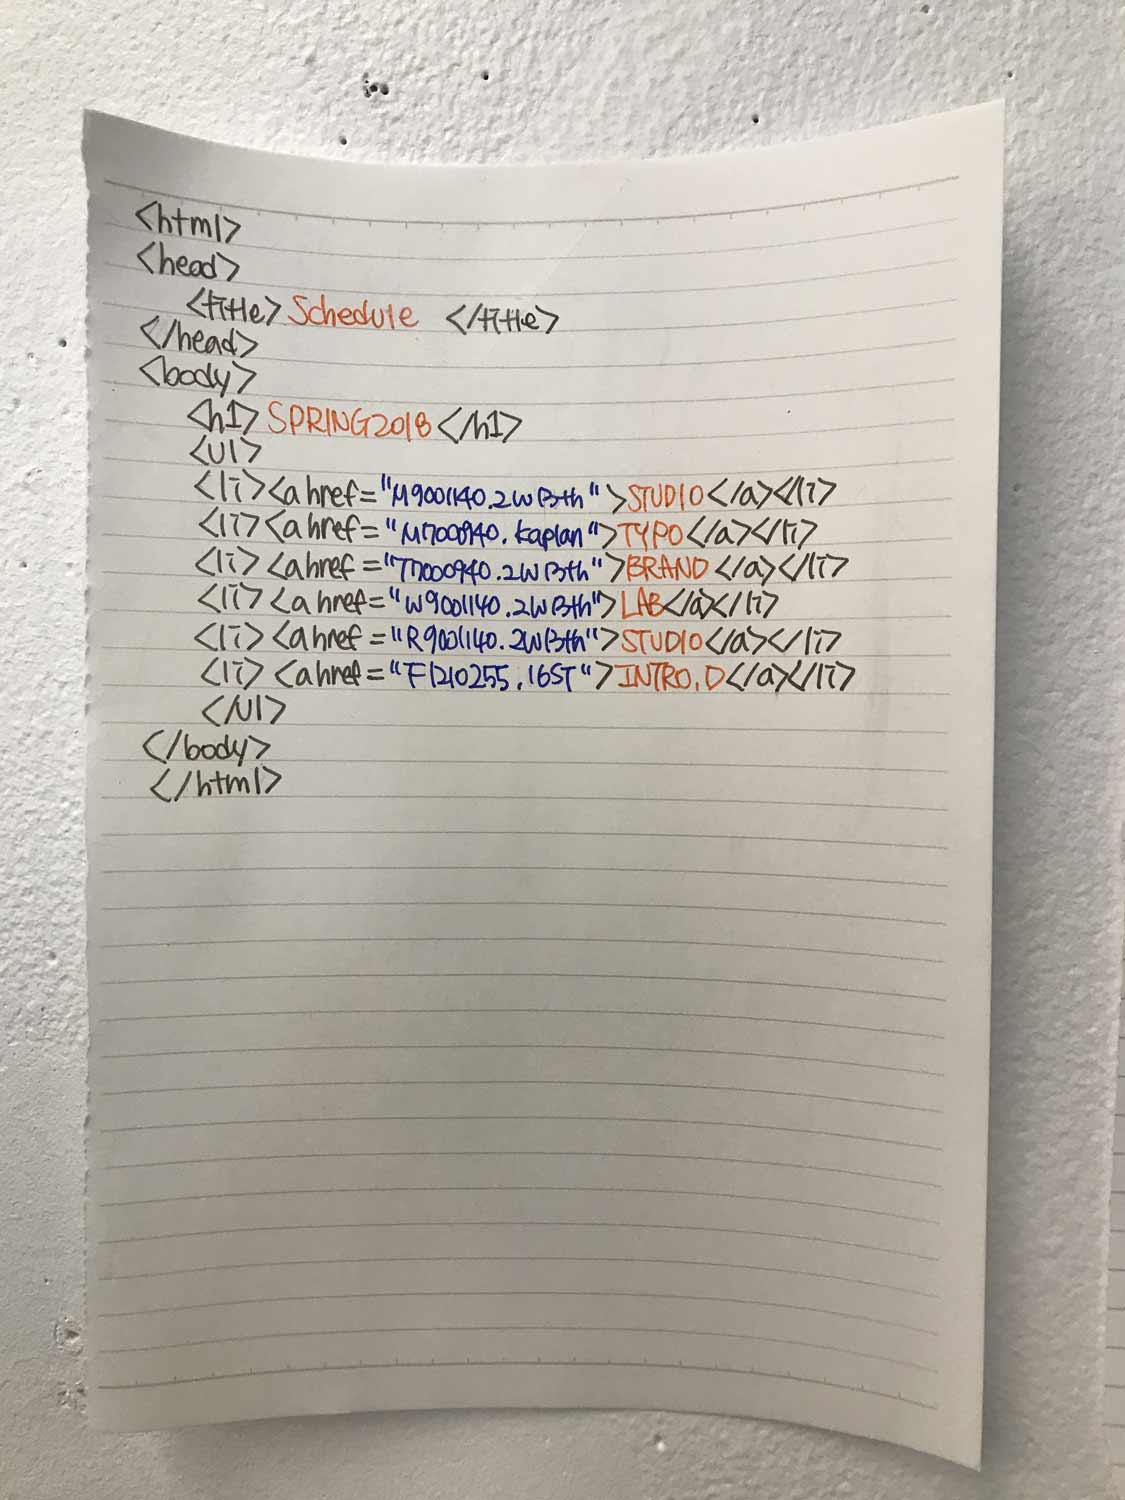 <html>
<head>
<title> Schedule </title>
</head>
<body>
<h1> SPRING2018 </h1>
<ul>
<li><a href="M9001140.2W13th">STUDIO</a></li>
<li><a href="M700940.kaplan">TYPO</a></li>
<li><a href="T7000940.2W13th">BRAND</a></li>
<li><a href="W9001140.2W13th">LAB</a></li>
<li><a href="R9001140.2W13th">STUDIO</a></li>
<li><a href="F1210255.16ST">INTRO.D</a></li>
</ul>
</body>
</html>